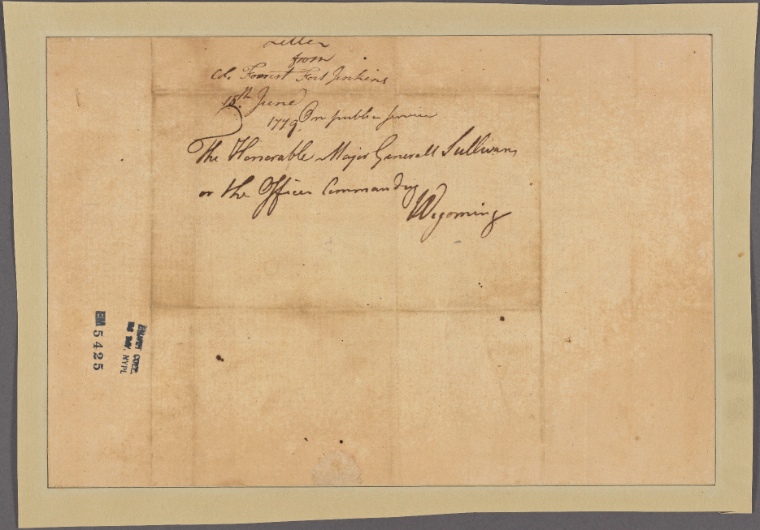 Letter
from
Col. Forrest Fort Jenkins
15th June
1779. On public service
The Honorable Major Generall Sullivan,
or the Officer Commanding
Wyoming
EM
5425
EMMET COLL.
NYPL